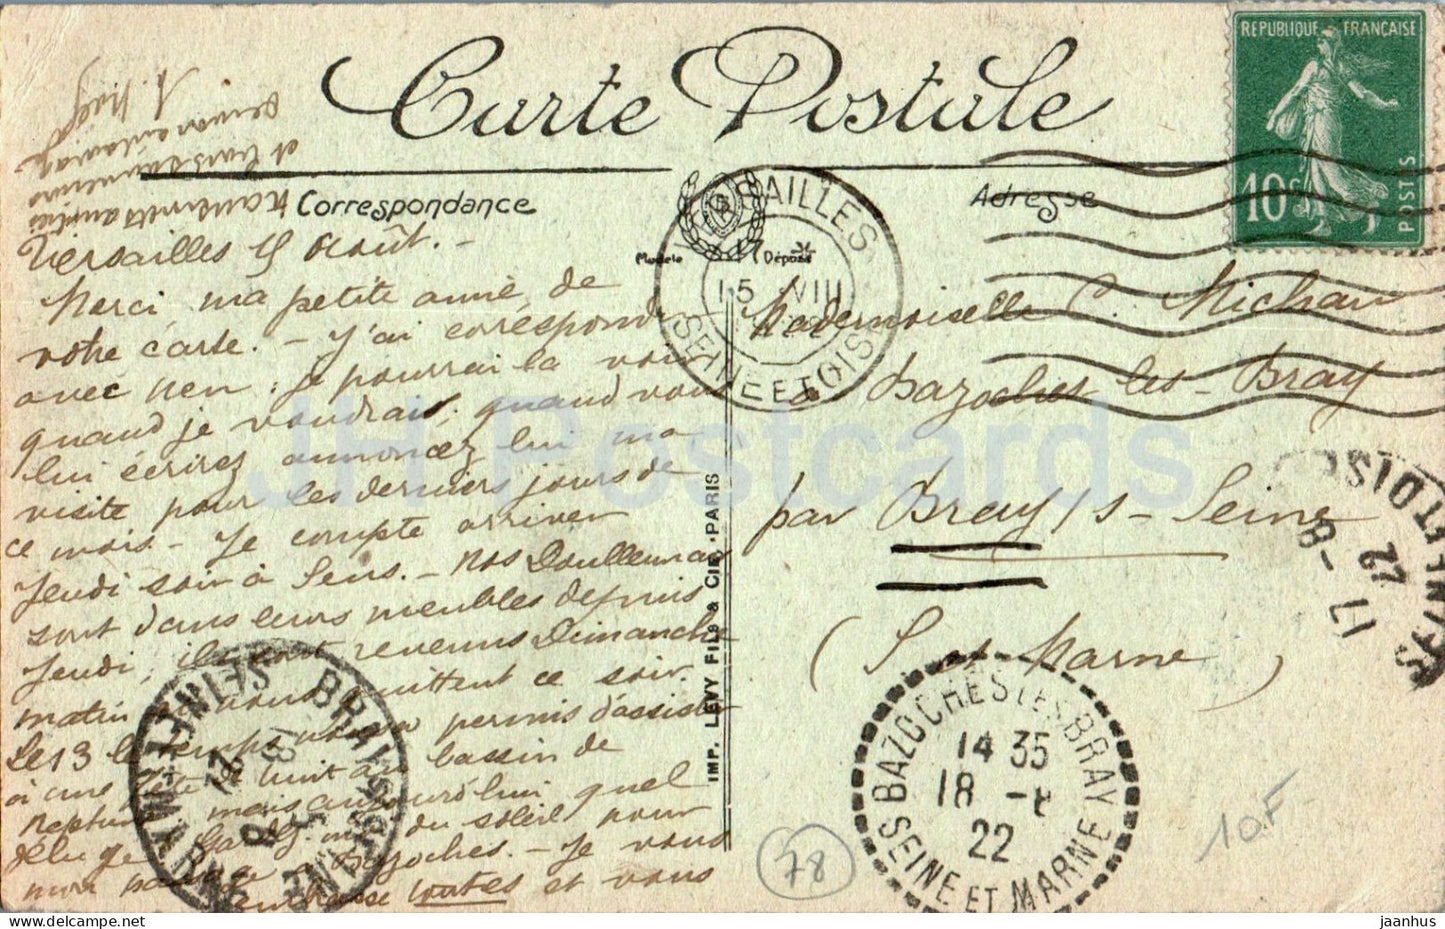 Carte Postale
RÉPUBLIQUE FRANÇAISE
10c
POSTES
Correspondance
Adresse
Modèle Déposé
VERSAILLES
17
15 VIII
SEINE ET OISE
et vous
Versailles 15 Août. -
Merci ma petite amie, de
votre carte. - J'ai correspondu
avec rien : je pourrai la voir
quand je voudrais ; quand vous
lui écrirez annoncez lui ma
visite pour les derniers jours de
ce mois. - Je compte arriver
Jeudi soir à Sens. - Nos Doullennais
sont dans leurs meubles depuis
Jeudi, ils sont revenus Dimanche
matin nous quittent ce soir.
Le 13 le temps nous a permis d'assister
à une fête de nuit au bassin de
Neptune mais aujourd'hui quel
déluge. Gardez moi du soleil pour
mon passage à Bazoches. - Je vous
embrasse toutes et vous
Mademoiselle C. Michau
à Bazoches les - Bray
par Bray s/s - Seine
(S. et Marne)
IMP. LEVY FILS & CIE. PARIS
BRAY S SEINE
SEINE ET MARNE
22
BAZOCHES LES BRAY
14 35
18 - 8
22
SEINE ET MARNE
17 - 8
22
78
10F
JH Postcards
jaanhus